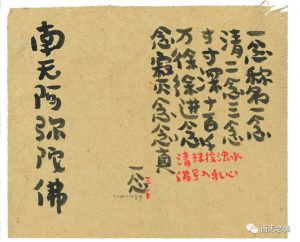 一念称名一念
清二念三念
寸寸深十百千
万徐徐进念
念寂尔念念真
清珠投浊水
佛号入乱心
一念
南无阿弥陀佛
南无念佛